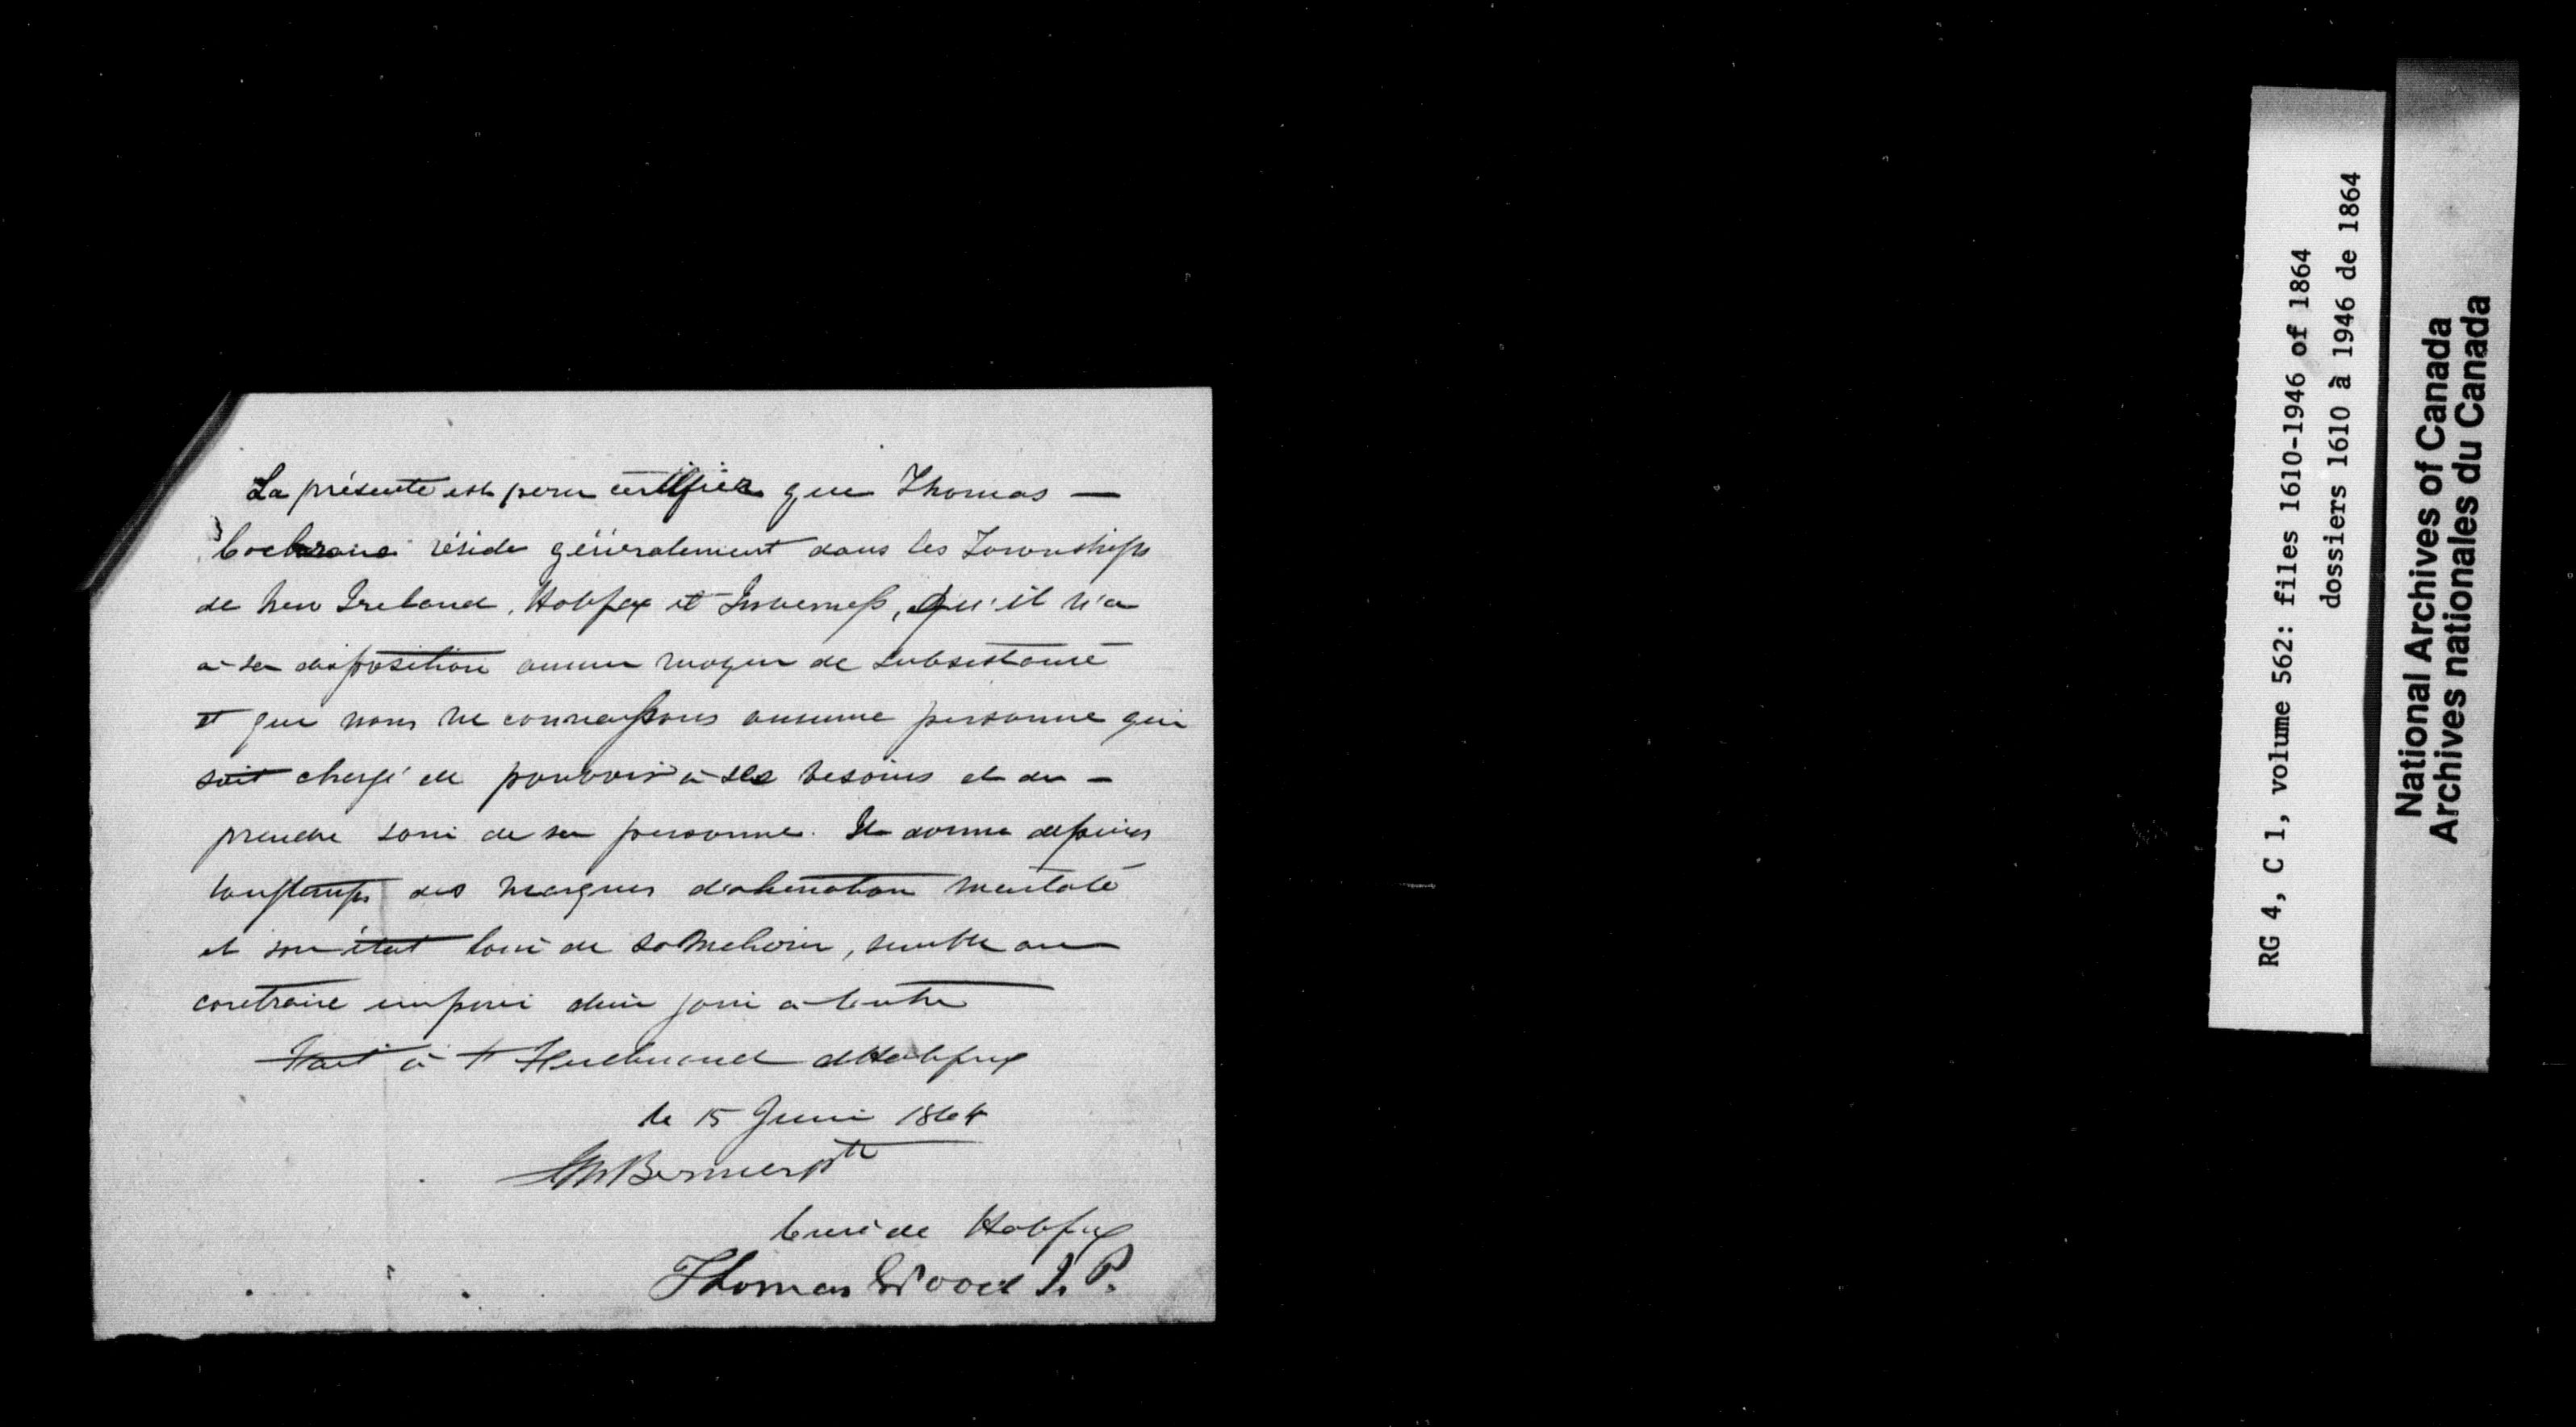 La présente est pour certifier que Thomas —
Cochrane réside généralement dans les Townships
de New Ireland, Halifax et Inverness, Qu'il n'a
à sa disposition aucun moyen de subsistance
et que nous ne connaissons aucune personne qui
soit chargé de pourvoir à ses besoins et de —
prendre soin de sa personne. Il donne depuis
longtemps des marques d'aliénation mentale
et son état loin de s'améliorer, semble au
contraire empiré de jour à l'autre
Fait à St Ferdinand d'Halifax
le 15 Juin 1864
Bernier Ptre
Curé de Halifax
Thomas Wood J. P.
RG 4, C 1, volume 562: files 1610-1946 of 1864
dossiers 1610 à 1946 de 1864
National Archives of Canada
Archives nationales du Canada